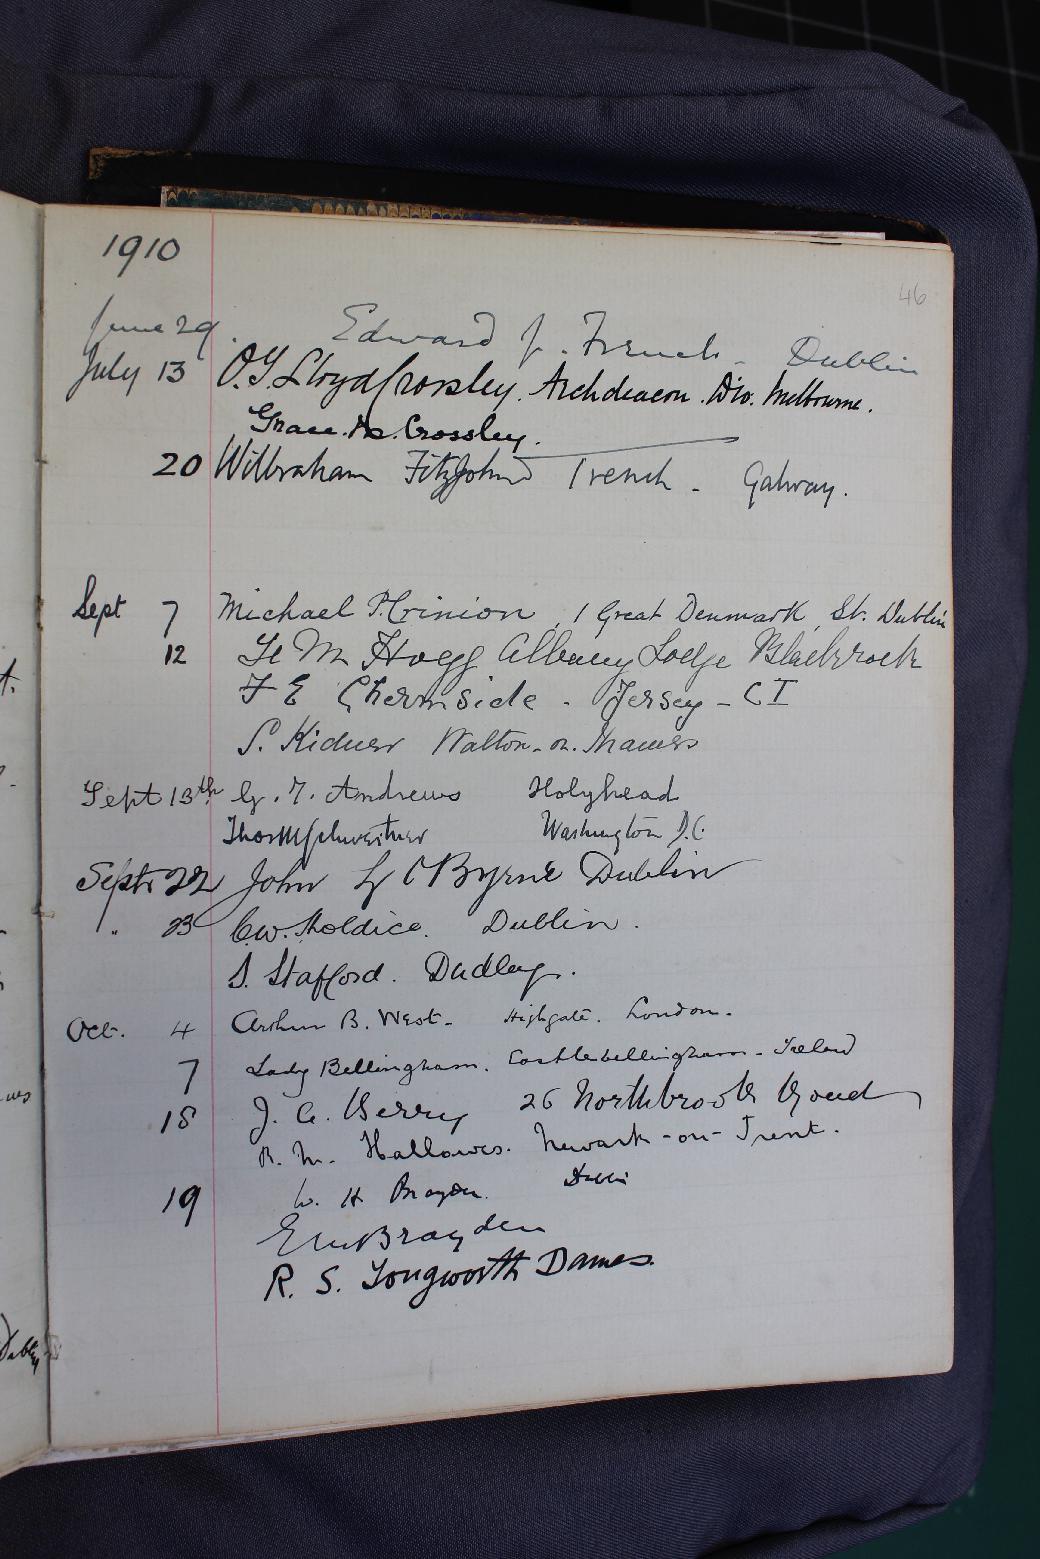 1910
46
June 29. Edward J. French - Dublin
July 13 O.T. Lloyd Crossley. Archdeacon. Dio. Melbourne.
Grace. M. Crossley.
20 Wilbraham FitzJohn Trench - Galway.
Sept 7 Michael P. Crinion, 1 Great Denmark, St. Dublin
12 Hogg Albany Lodge Blackrock
F E Chermside - Jersey - C I
S. Kidner Walton-on-Thames
Sept 13th G. T. Andrews Holyhead
Washington D.C.
Sept 22 John L O'Byrne Dublin
" 23 C.W. Holdice. Dublin.
S. Stafford. Dudley.
Oct. 4 Arthur B. West - Highgate. London.
7 Lady Bellingham. Castlebellingham - Ireland
18 J. A. Berry 26 Northbrook Road
R. M. Hallowes. Newark-on-Trent.
19 W. H Brayden. Dublin
Brayden
R. S. Longworth Dames.